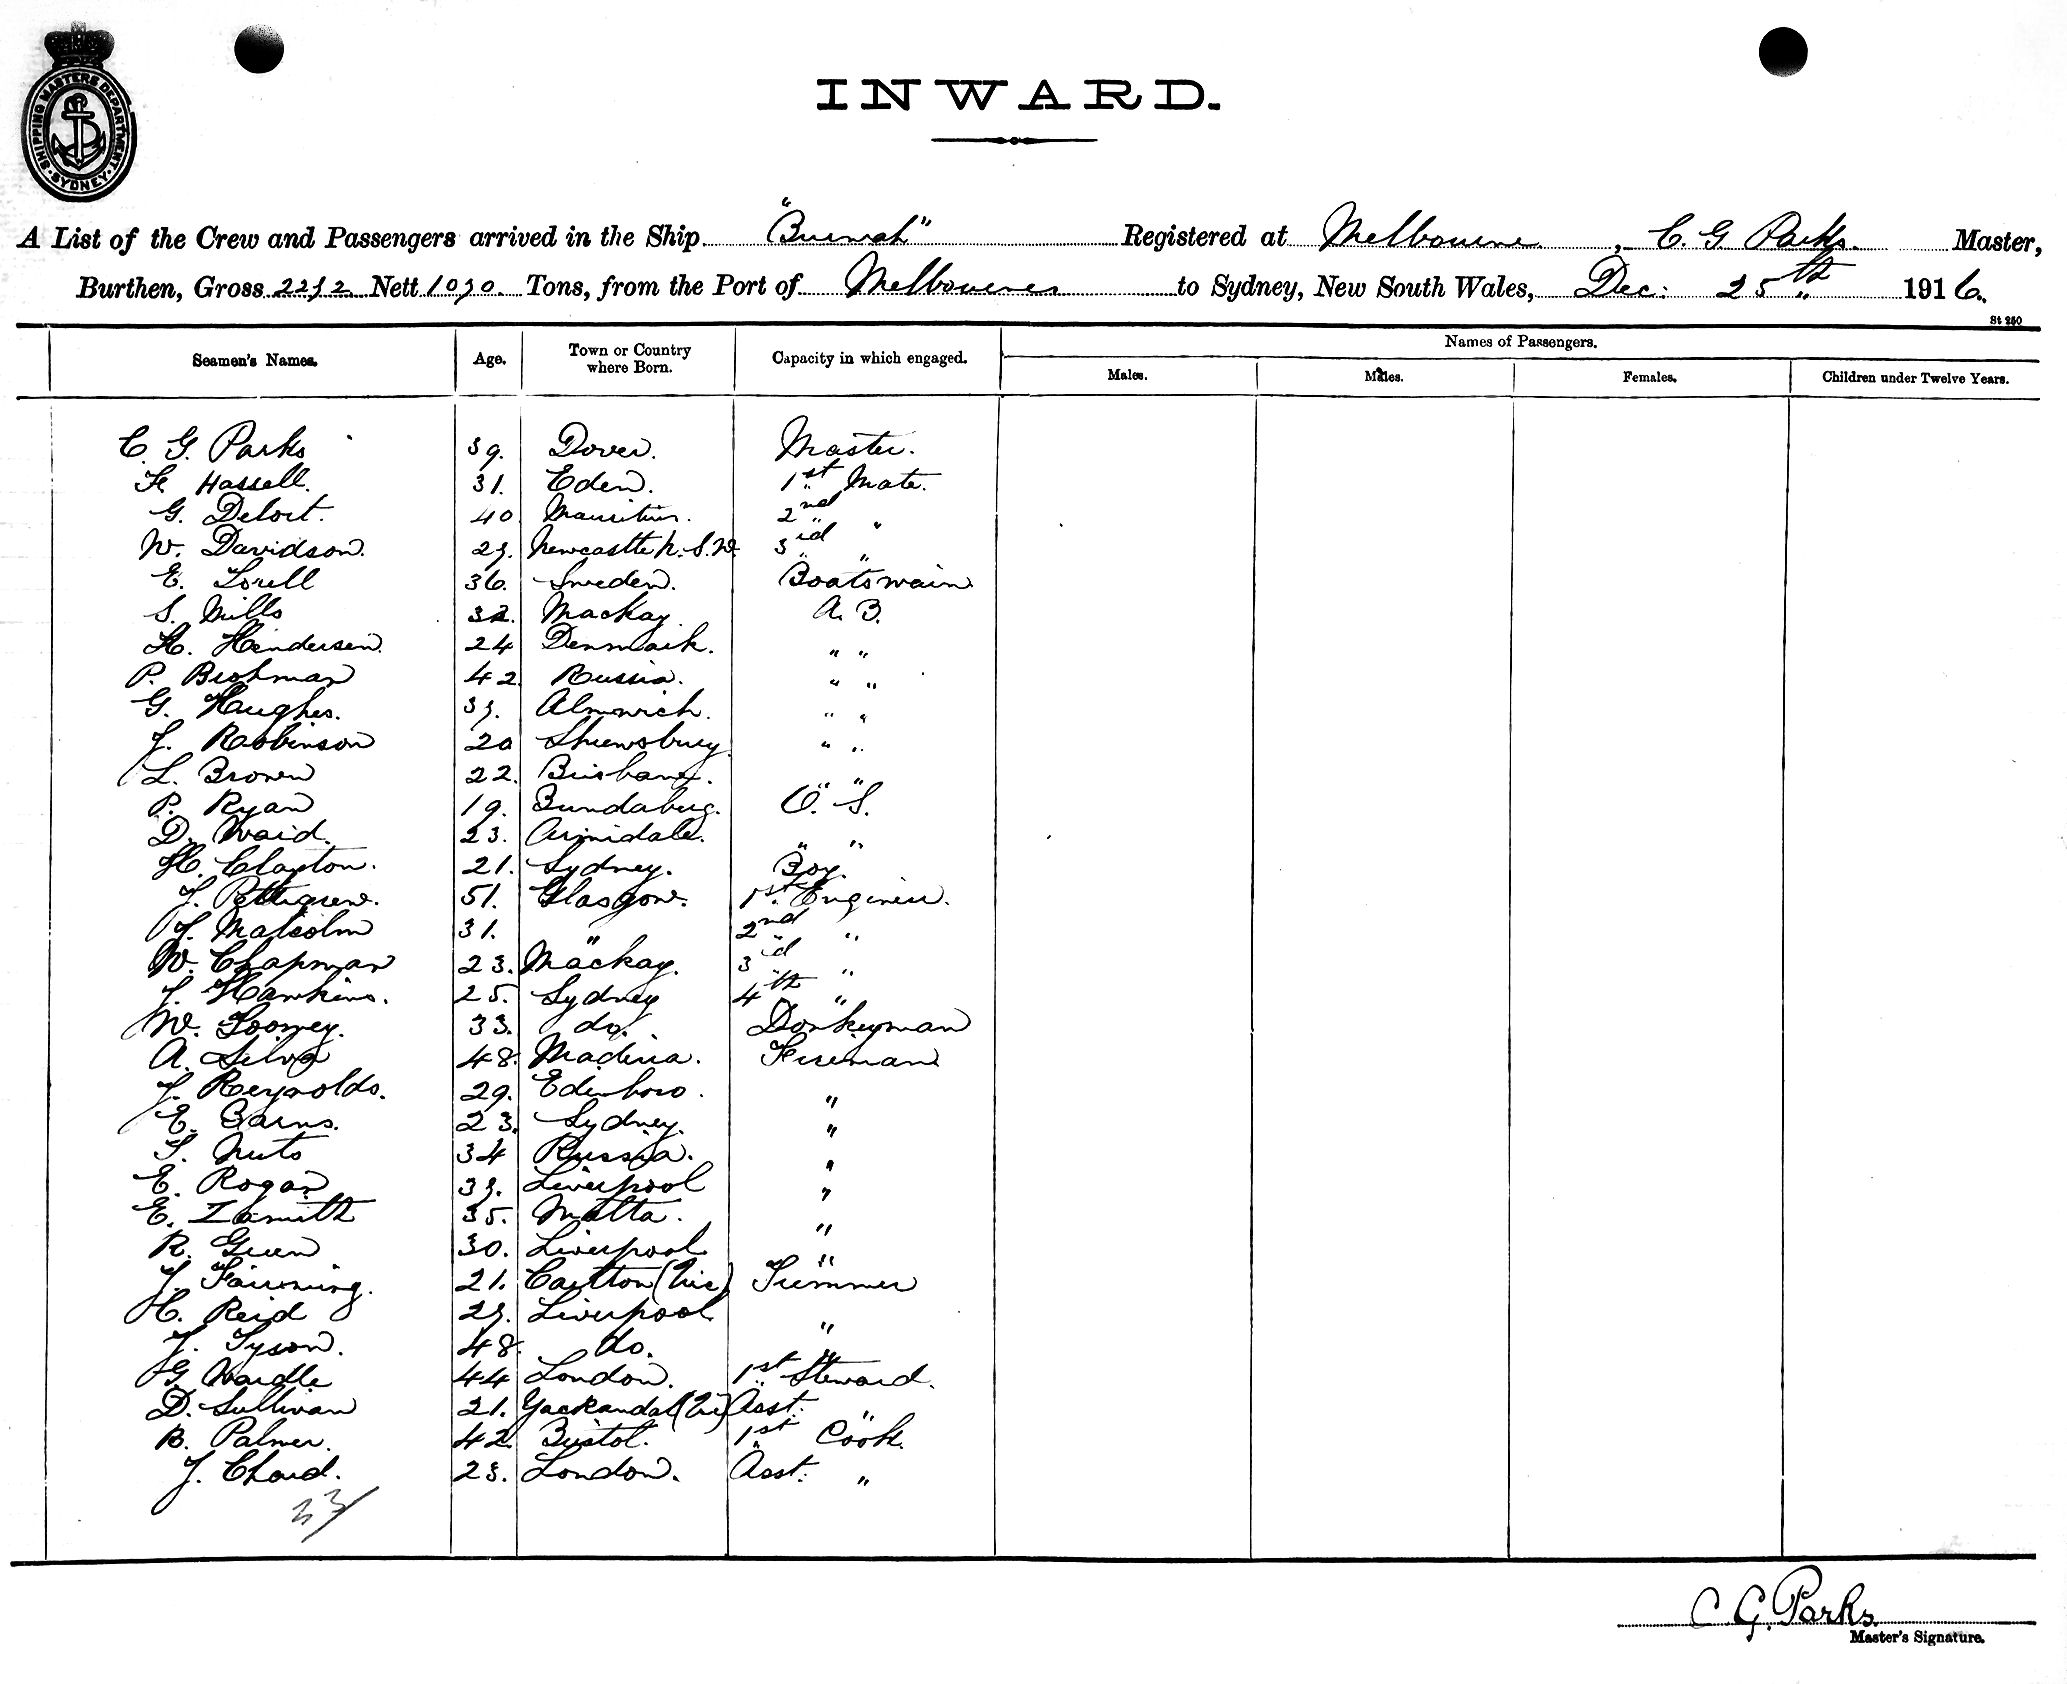 SHIPPING MASTERS DEPARTMENT · SYDNEY ·
INWARD.
A List of the Crew and Passengers arrived in the Ship "Burwah" Registered at Melbourne, C. G. Parks. Master,
Burthen, Gross 2272 Nett 1070. Tons, from the Port of Melbourne to Sydney, New South Wales, Dec: 25th 1916.
St 250
Seamen's Names. Age. Town or Country where Born. Capacity in which engaged. Names of Passengers.
Males. Males. Females. Children under Twelve Years.
C. G. Parks 39. Dover. Master.
F. Hassell. 31. Eden. 1st Mate.
G. Delort. 40 Mauritius. 2nd "
W. Davidson. 27. Newcastle N.S.W. 3rd "
E. Lorell 36. Sweden. Boatswain
S. Mills 32. Mackay. A. B.
H. Hendersen. 24 Denmark. " "
P. Brohman 42 Russia. " "
G. Hughes. 37. Almwich. " "
J. Robinson 20 Shrewsbury " "
L. Brown 22. Brisbane. " "
P. Ryan 19. Bundaberg. O. S.
D. Ward. 23. Armidale. " "
H. Clayton. 21. Sydney. Boy.
J. Pettigrew. 51. Glasgow. 1st Engineer.
J. Malcolm 31. " 2nd "
W. Chapman 23. Mackay. 3rd "
J. Hawkins. 25. Sydney 4th "
W. Looney. 33. do. Donkeyman
A. Silva 48. Madeira. Fireman
J. Reynolds. 29. Edenboro. "
E. Barns. 23. Sydney. "
S. Nuts 34 Russia. "
E. Rogan 37. Liverpool "
E. Zamitt 35. Malta. "
R. Green 30. Liverpool "
J. Fairming. 21. Carlton (Vic) Trimmer
H. Reid 27. Liverpool "
J. Tyson. 48. do. "
G. Wardle 44 London. 1st Steward.
D. Sullivan 21. Yackandal (Vic) Asst: "
B. Palmer. 42 Bristol. 1st Cook.
J. Chard. 23. London. Asst: "
33/
C G. Parks.
Master's Signature.